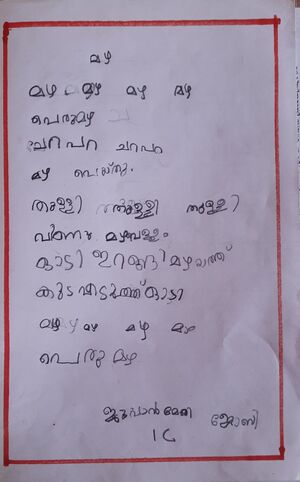 മഴ
മഴ മഴ മഴ മഴ
പെരുമഴ
ചറപറ ചറപറ
മഴ പെയ്തു.
തുള്ളി തുള്ളി തുള്ളി
വീണു മഴവള്ളം
ഓടി ഇറങ്ങി മഴയത്ത്
കുട എടുത്ത് ഓടി
മഴ മഴ മഴ മഴ
പെരു മഴ
ജോബി
1 C